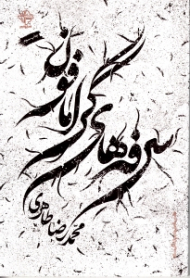 سرفه‌های
گرامافون
محمدرضا طاهری